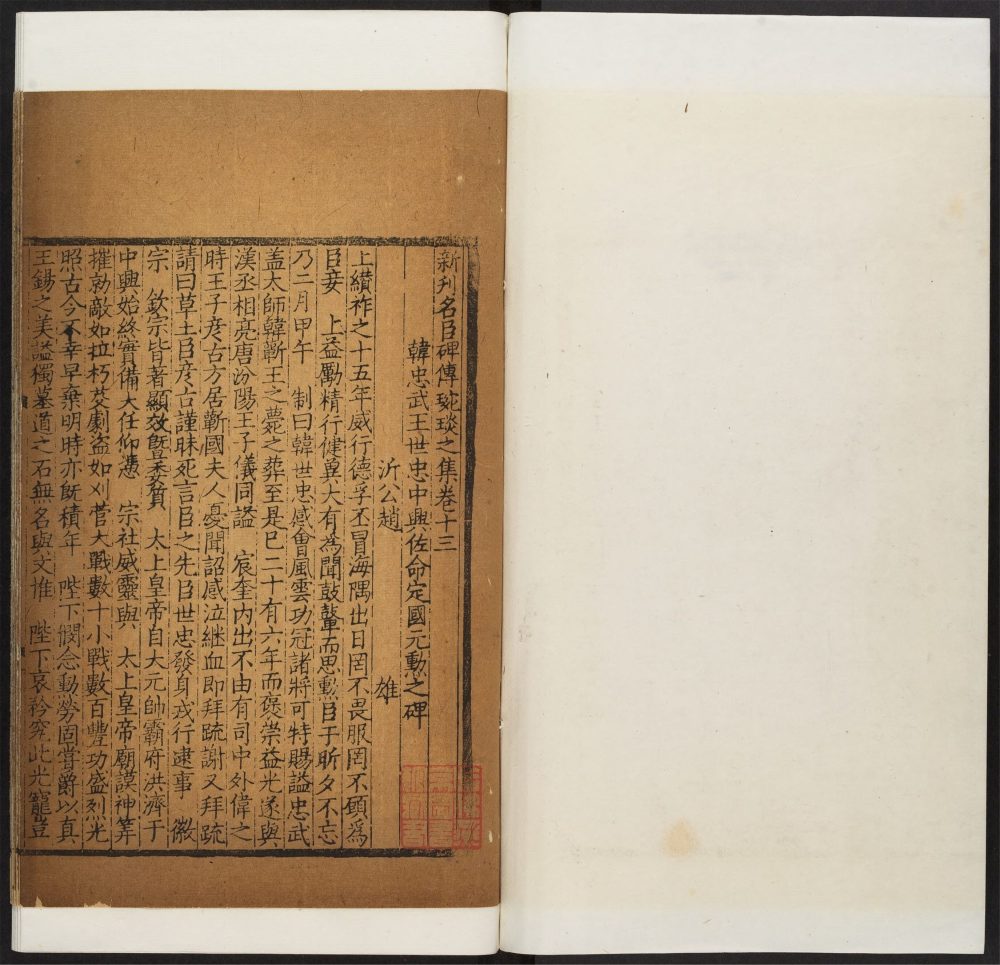 新刋名臣碑傳琬琰之集卷十三
韓忠武王世忠中興佐命定國元勳之碑
沂公趙 雄
上纘祚之十五年威行德孚丕冒海隅出日罔不畏服罔不願爲
臣妾 上益勵精行健冀大有爲聞鼓鼙而思勳臣于昕夕不忘
乃二月甲午 制曰韓世忠感會風雲功冠諸將可特賜謚忠武
盖太師韓蘄王之薨之葬至是巳二十有六年而襃崇益光遂與
漢丞相亮唐汾陽王子儀同謚 宸奎内出不由有司中外偉之
時王子彦古方居蘄國夫人憂聞詔感泣継血即拜疏謝又拜疏
請曰草土臣彦古謹昧死言臣之先臣世忠發身戎行逮事 徽
宗 欽宗皆著顯效曁委質 太上皇帝自大元帥霸府洪濟于
中興始終實備大任仰憑 宗社威靈與 太上皇帝廟謨神筭
摧勍敵如拉朽芟劇盗如刈菅大戰數十小戰數百豐功盛烈光
照古今不幸早棄明時亦既積年 陛下憫念勳勞固嘗爵以真
王錫之美謚獨墓道之石無名與文惟 陛下哀矜究此光寵豈